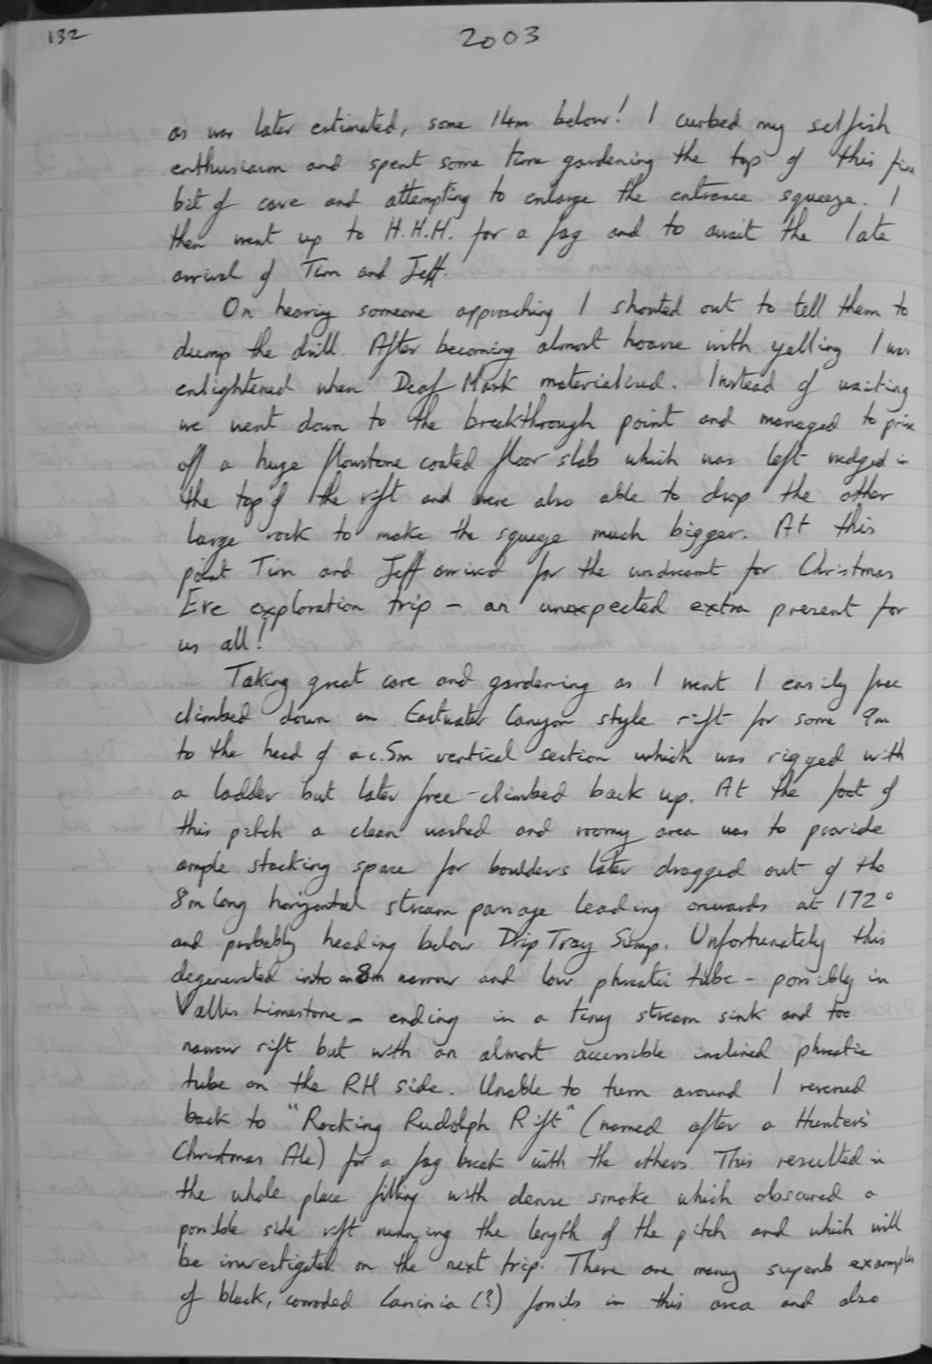 132
2003
as was later estimated, some 14m below! I curbed my selfish
enthusiasm and spent some time gardening the top of this fine
bit of cave and attempting to enlarge the entrance squeeze. I
then went up to H.H.H. for a fag and to await the late
arrival of Tim and Jeff.
On hearing someone approaching I shouted out to tell them to
dump the drill. After becoming almost hoarse with yelling I was
enlightened when Deaf Mark materialised. Instead of waiting
we went down to the breakthrough point and managed to prise
off a huge flowstone coated floor slab which was left wedged in
the top of the rift and were also able to drop the other
large rock to make the squeeze much bigger. At this
point Tim and Jeff arrived for the undreamt for Christmas
Eve exploration trip - an unexpected extra present for
us all!
Taking great care and gardening as I went I easily free
climbed down an Eastwater Canyon style rift for some 9m
to the head of a c.5m vertical section which was rigged with
a ladder but later free-climbed back up. At the foot of
this pitch a clean washed and roomy area was to provide
ample stacking space for boulders later dragged out of the
8m long horizontal stream passage leading onwards at 172°
and probably heading below Drip Tray Sump. Unfortunately this
degenerated into an 8m narrow and low phreatic tube - possibly in
Vallis Limestone - ending in a tiny stream sink and too
narrow rift but with an almost accessible inclined phreatic
tube on the RH side. Unable to turn around I reversed
back to "Rocking Rudolph Rift" (named after a Hunters'
Christmas Ale) for a fag break with the others. This resulted in
the whole place filling with dense smoke which obscured a
possible side rift running the length of the pitch and which will
be investigated on the next trip. There are many superb examples
of black, corroded Caninia (?) fossils in this area and also